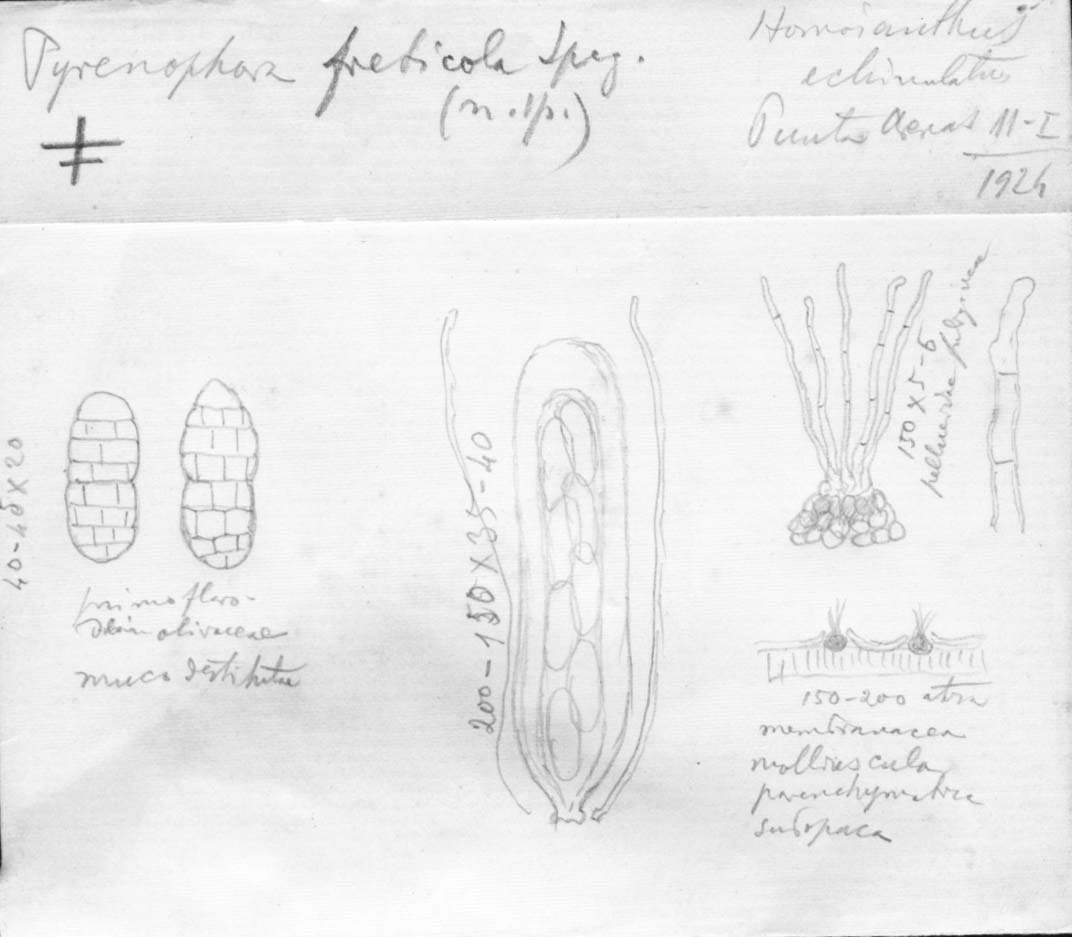 Pyrenophora freticola Speg.
(n. sp.)
Homoianthus
echinulatus
Punta Arenas 11-I
1924
40-45 X 20
primo flavo-
dein olivaceae
muco destitutae
200-150 X 35-40
150 X 5-6
pellucide fuliginea
150-200 atra
membranacea
molliuscula
parenchymatica
subopaca